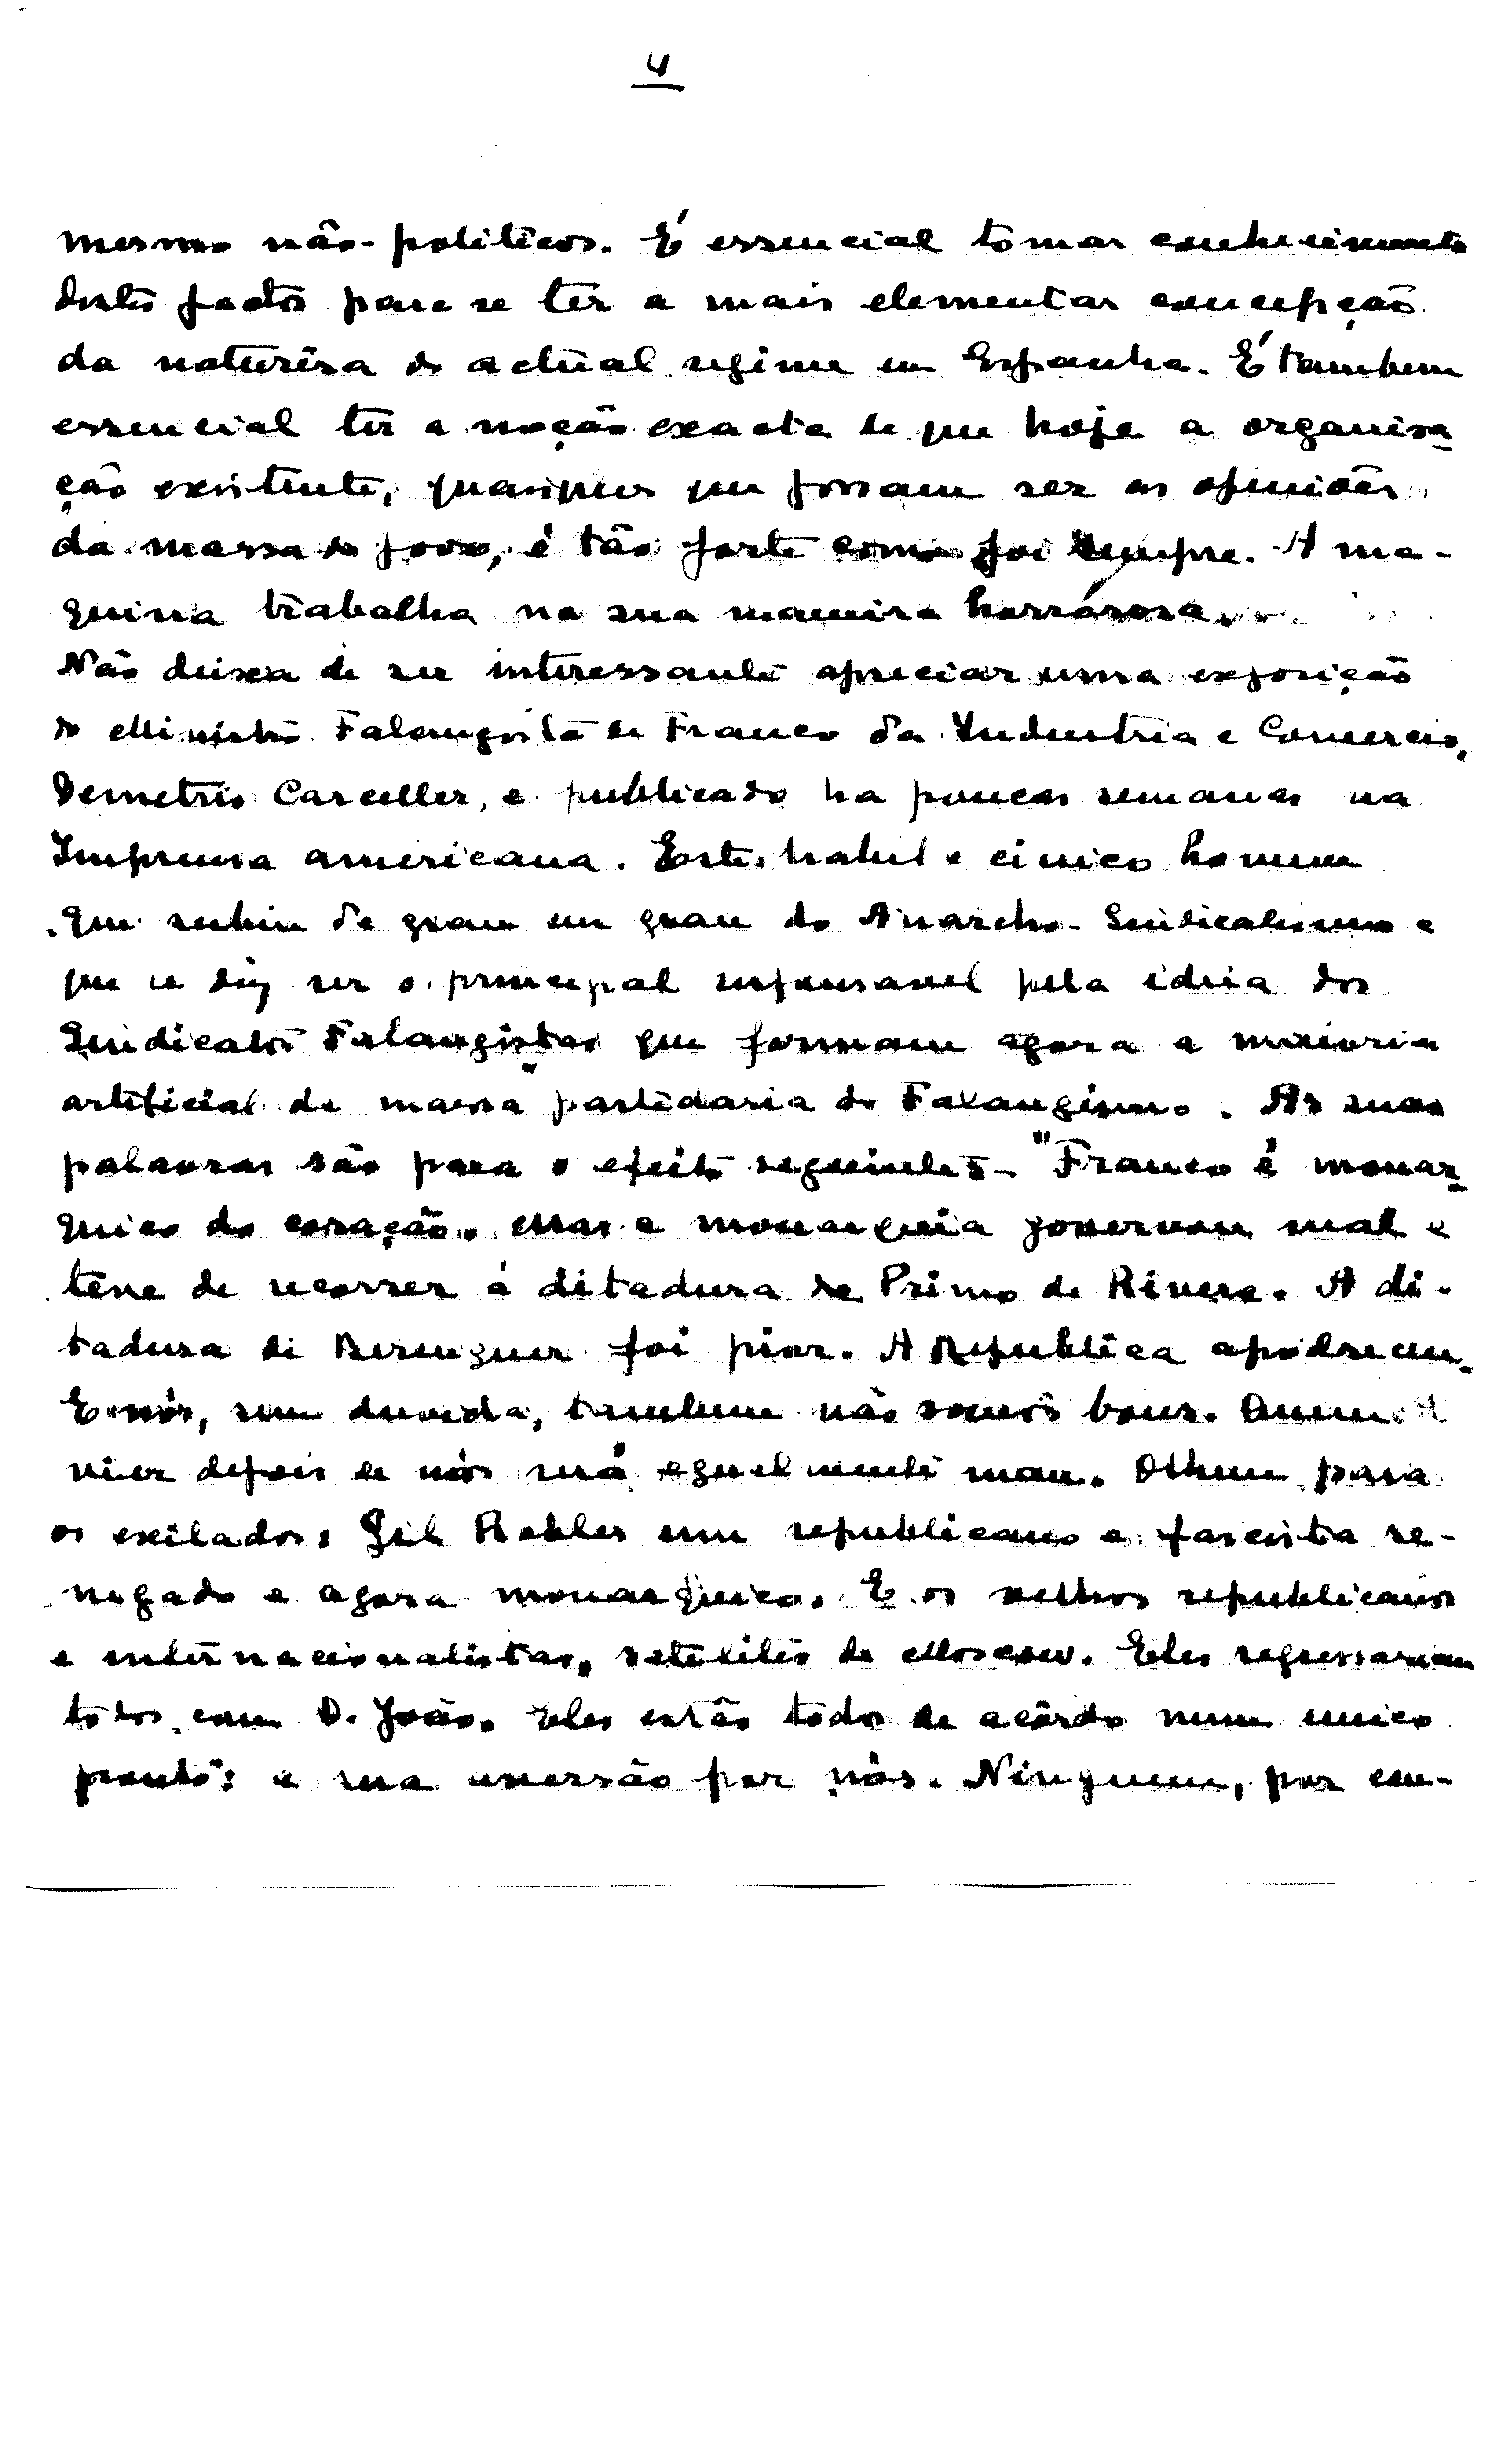 4
mesmo não-politicos. É essencial tomar conhecimento
destes factos para se ter a mais elementar concepção
da naturêsa do actual regime em Espanha. É tambem
essencial ter a noção exacta de que hoje a organisa-
ção existente, quaisquer que possam ser as opiniões
da massa do povo, é tão forte como foi sempre. A ma-
quina trabalha na sua maneira horrorosa.
Não deixa de ser interessante apreciar uma exposição
do Ministro Falangista de Franco da Industria e Comercio,
Demetrio Carceller, e publicado ha poucas semanas na
Imprensa americana. Este habil e cinico homem
que subiu de grau em grau do Anarcho-Sindicalismo e
que se diz ser o principal responsavel pela ideia dos
Sindicatos Falangistas que formam agora a maioria
artificial da massa partidaria do Falangismo. As suas
palavras são para o efeito seguinte: - "Franco é monar-
quico do coração. Mas a monarquia governou mal e
teve de recorrer á ditadura de Primo de Rivera. A di-
tadura de Berenguer foi pior. A Republica apodreceu.
E nós, sem duvida, tambem não somos bons. Quem
vier depois de nós será egualmente mau. Olhem para
os exilados, Gil Robles um republicano e fascista re-
negado e agora monarquico. E os velhos republicanos
e internacionalistas, satelites de Moscow. Eles regressariam
todos com D. João. Eles estão todos de acôrdo num unico
ponto: a sua aversão por nós. Ninguem, por con-